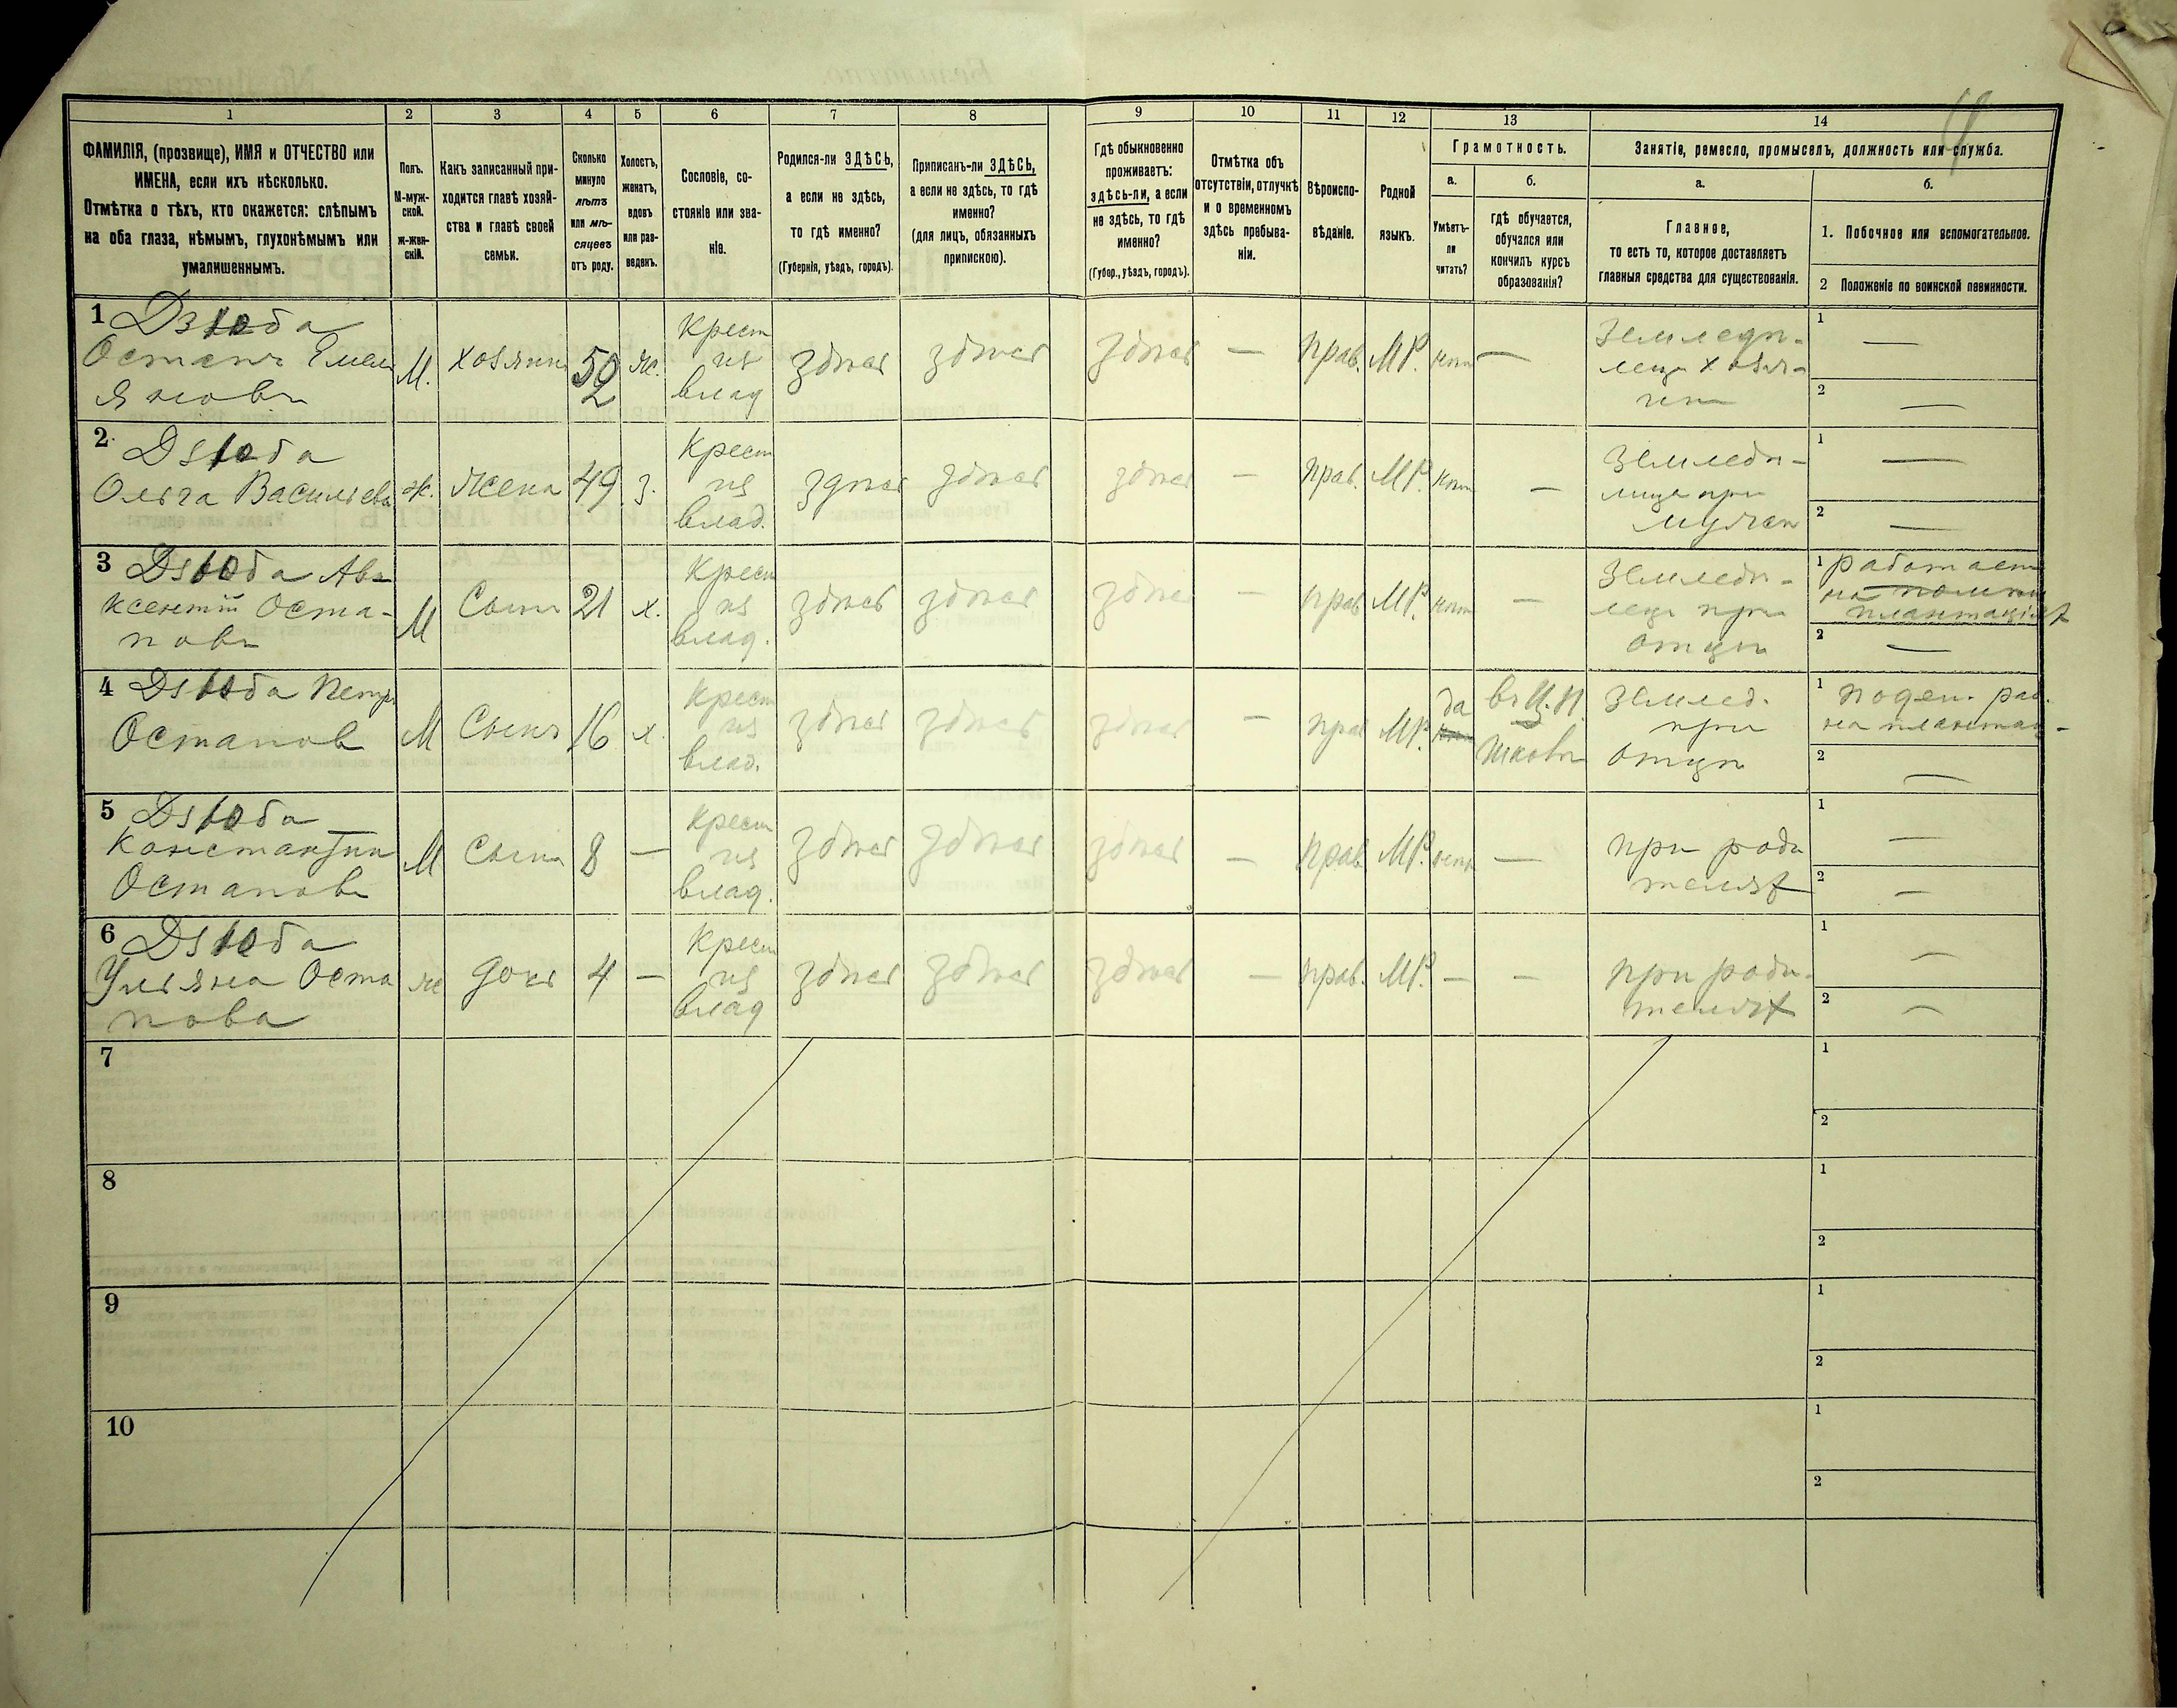 1 2 3 4 5 6 7 8 9 10 11 12 13 14
ФАМИЛІЯ, (прозвище), ИМЯ и ОТЧЕСТВО или
ИМЕНА, если ихъ нѣсколько.
Отмѣтка о тѣхъ, кто окажется: слѣпымъ
на оба глаза, нѣмымъ, глухонѣмымъ или
умалишеннымъ.
Полъ.
М-муж-
ской.
ж-жен-
скій.
Какъ записанный при-
ходится главѣ хозяй-
ства и главѣ своей
семьи.
Сколько
минуло
лѣтъ
или мѣ-
сяцевъ
отъ роду.
Холостъ,
женатъ,
вдовъ
или раз-
веденъ.
Сословіе, со-
стояніе или зва-
ніе.
Родился-ли ЗДѢСЬ,
а если не здѣсь,
то гдѣ именно?
(Губернія, уѣздъ, городъ).
Приписанъ-ли ЗДѢСЬ,
а если не здѣсь, то гдѣ
именно?
(для лицъ, обязанныхъ
припискою).
Гдѣ обыкновенно
проживаетъ:
здѣсь-ли, а если
не здѣсь, то гдѣ
именно?
(Губер., уѣздъ, городъ).
Отмѣтка объ
отсутствіи, отлучкѣ
и о временномъ
здѣсь пребыва-
ніи.
Вѣроиспо-
вѣданіе.
Родной
языкъ.
Грамотность.
а.
Умѣетъ-
ли
читать?
б.
гдѣ обучается,
обучался или
кончилъ курсъ
образованія?
Занятіе, ремесло, промыселъ, должность или служба.
а.
Главное,
то есть то, которое доставляетъ
главныя средства для существованія.
б.
1. Побочное или вспомогательное.
2 Положеніе по воинской повинности.
1 Дзюба
Останъ Емель
яновъ
М.
хозяинъ
52
ж.
Крест
из
влад
здѣсь
здѣсь
здѣсь
—
прав.
МР.
нѣтъ
—
Земледѣ-
лецъ хозя-
инъ
1 —
2 —
2. Дзюба
Ольга Васильева
ж.
жена
49
з.
Крест
из
влад.
здѣсь
здѣсь
здѣсь
—
прав.
МР.
нѣтъ
—
Земледѣ-
лица при
мужѣ
1 —
2 —
3 Дзюба Ав-
ксентій Оста-
повъ
М
Сынъ
21
х.
Крест
из
влад.
здѣсь
здѣсь
здѣсь
—
прав
МР.
нѣтъ
—
Земледѣ-
лецъ при
отцѣ
1 работаетъ
на
плантаціях
2 —
4 Дзюба Петръ
Остапов
М
Сынъ
16
х.
Крест
из
влад.
здѣсь
здѣсь
здѣсь
—
прав
МР.
да
въ Ц. П.
школѣ
Землед.
при
отцѣ
1 поден. раб.
на плантац-
2 —
5 Дзюба
Константинъ
Остаповъ
М
Сынъ
8
—
Крест
из
влад.
здѣсь
здѣсь
здѣсь
—
прав
МР.
нѣтъ
—
при роди
телях
1 —
2 —
6 Дзюба
Ульяна Оста
пова
ж
дочь
4
—
Крест
из
влад
здѣсь
здѣсь
здѣсь
—
прав.
МР.
—
—
при роди-
телях
1 —
2 —
7
1
2
8
1
2
9
1
2
10
1
2